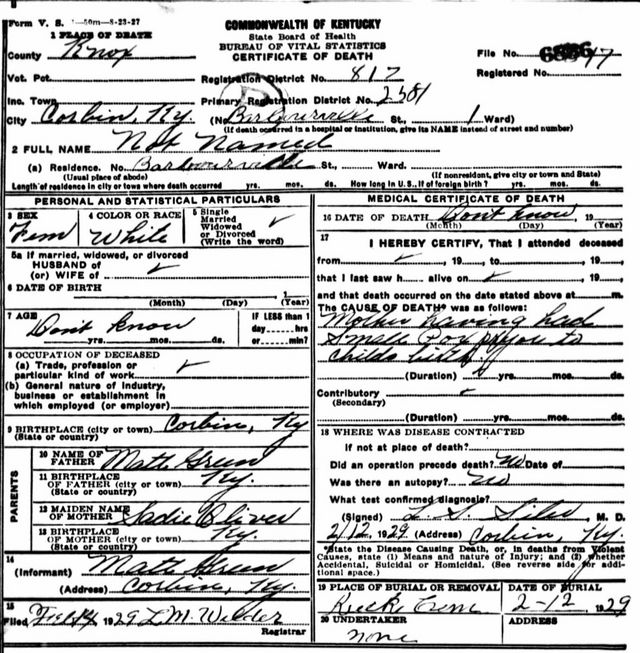 Form V. S. 1-50m-8-23-27
COMMONWEALTH OF KENTUCKY
State Board of Health
BUREAU OF VITAL STATISTICS
CERTIFICATE OF DEATH
1 PLACE OF DEATH
County Knox
File No.
Vot. Pct. Registration District No. 817 Registered No.
Inc. Town Primary Registration District No. 2381
City Corbin, Ky. (No. Barbourville St., 1 Ward)
(If death occurred in a hospital or institution, give its NAME instead of street and number)
2 FULL NAME Not Named
(a) Residence. No. Barbourville St., Ward.
(Usual place of abode) (If nonresident, give city or town and State)
Length of residence in city or town where death occurred yrs. mos. ds. How long in U.S., if of foreign birth? yrs. mos. ds.
PERSONAL AND STATISTICAL PARTICULARS
3 SEX 4 COLOR OR RACE 5 Single
Married
Widowed
or Divorced
(Write the word)
Fem White
5a If married, widowed, or divorced
HUSBAND of
(or) WIFE of
6 DATE OF BIRTH 1
(Month) (Day) (Year)
7 AGE IF LESS than 1
Don't know day hrs
yrs. mos. ds. or min?
8 OCCUPATION OF DECEASED
(a) Trade, profession or
particular kind of work
(b) General nature of industry,
business or establishment in
which employed (or employer)
9 BIRTHPLACE (city or town) Corbin, Ky
(State or country)
PARENTS
10 NAME OF
FATHER Matt Green
11 BIRTHPLACE
OF FATHER (city or town) Ky.
(State or country)
12 MAIDEN NAME
OF MOTHER Sadie Oliver
13 BIRTHPLACE
OF MOTHER (city or town) Ky.
(State or country)
14
(Informant) Matt Green
(Address) Corbin, Ky.
15
Filed 1929 L M. Wilder
Registrar
MEDICAL CERTIFICATE OF DEATH
16 DATE OF DEATH Don't know, 19
(Month) (Day) (Year)
17
I HEREBY CERTIFY, That I attended deceased
from , 19 , to , 19 ,
that I last saw h alive on , 19 ,
and that death occurred on the date stated above at m.
The CAUSE OF DEATH* was as follows:
Mother having had
Small Pox to
childs birth.
(Duration) yrs. mos. ds.
Contributory
(Secondary)
(Duration) yrs. mos. ds.
18 WHERE WAS DISEASE CONTRACTED
if not at place of death?
Did an operation precede death? No Date of
Was there an autopsy? No
What test confirmed diagnosis?
(Signed) , M. D.
2/12, 1929 (Address) Corbin, Ky.
*State the Disease Causing Death, or, in deaths from Violent
Causes, state (1) Means and nature of Injury; and (2) whether
Accidental, Suicidal or Homicidal. (See reverse side for addi-
tional space.)
19 PLACE OF BURIAL OR REMOVAL DATE OF BURIAL
2-12 1929
20 UNDERTAKER ADDRESS
none